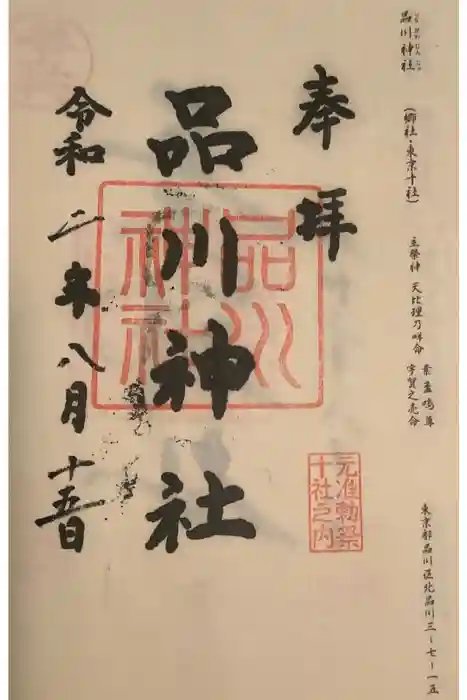 しながわじんじゃ
品川神社
(郷社・東京十社)
主祭神 天比理乃咩命
素盞嗚尊
宇賀之売命
東京都品川区北品川三-七-一五
奉拝
品川神社
令和二年八月十五日
品川神社
元准勅祭
十社之内